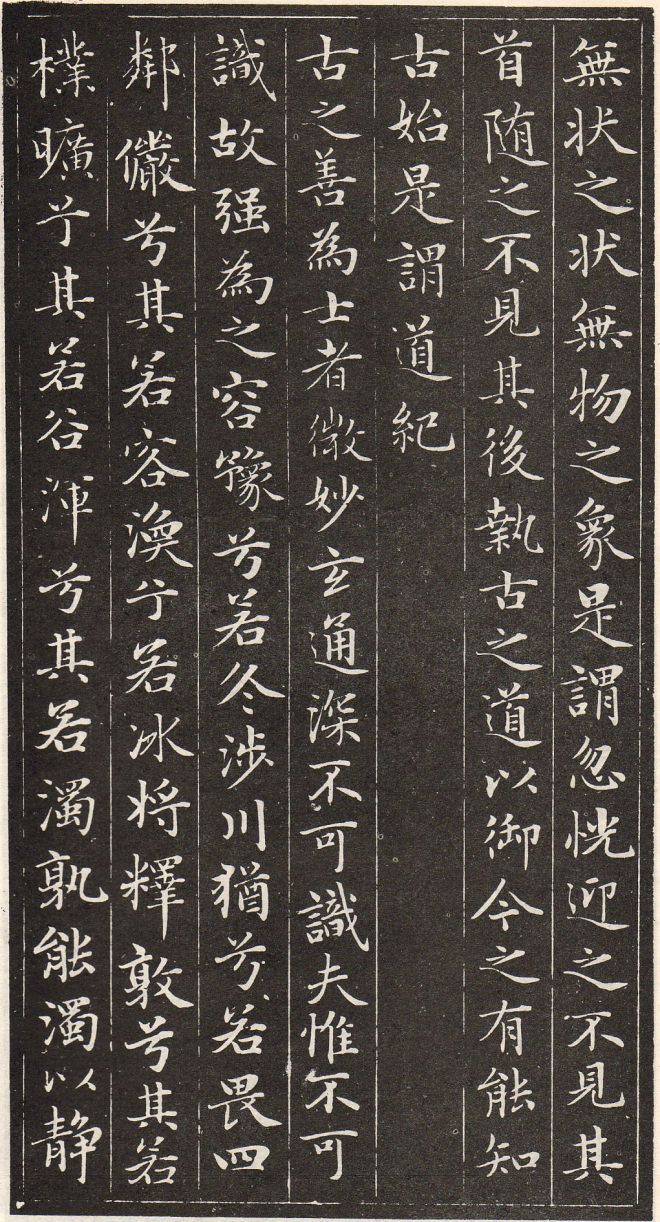 無状之状無物之象是謂忽恍迎之不見其
首随之不見其後執古之道以御今之有能知
古始是謂道紀
古之善為士者微妙玄通深不可識夫惟不可
識故强為之容豫兮若冬涉川猶兮若畏四
鄰儼兮其若客渙兮若冰将釋敦兮其若
樸曠兮其若谷渾兮其若濁孰能濁以静